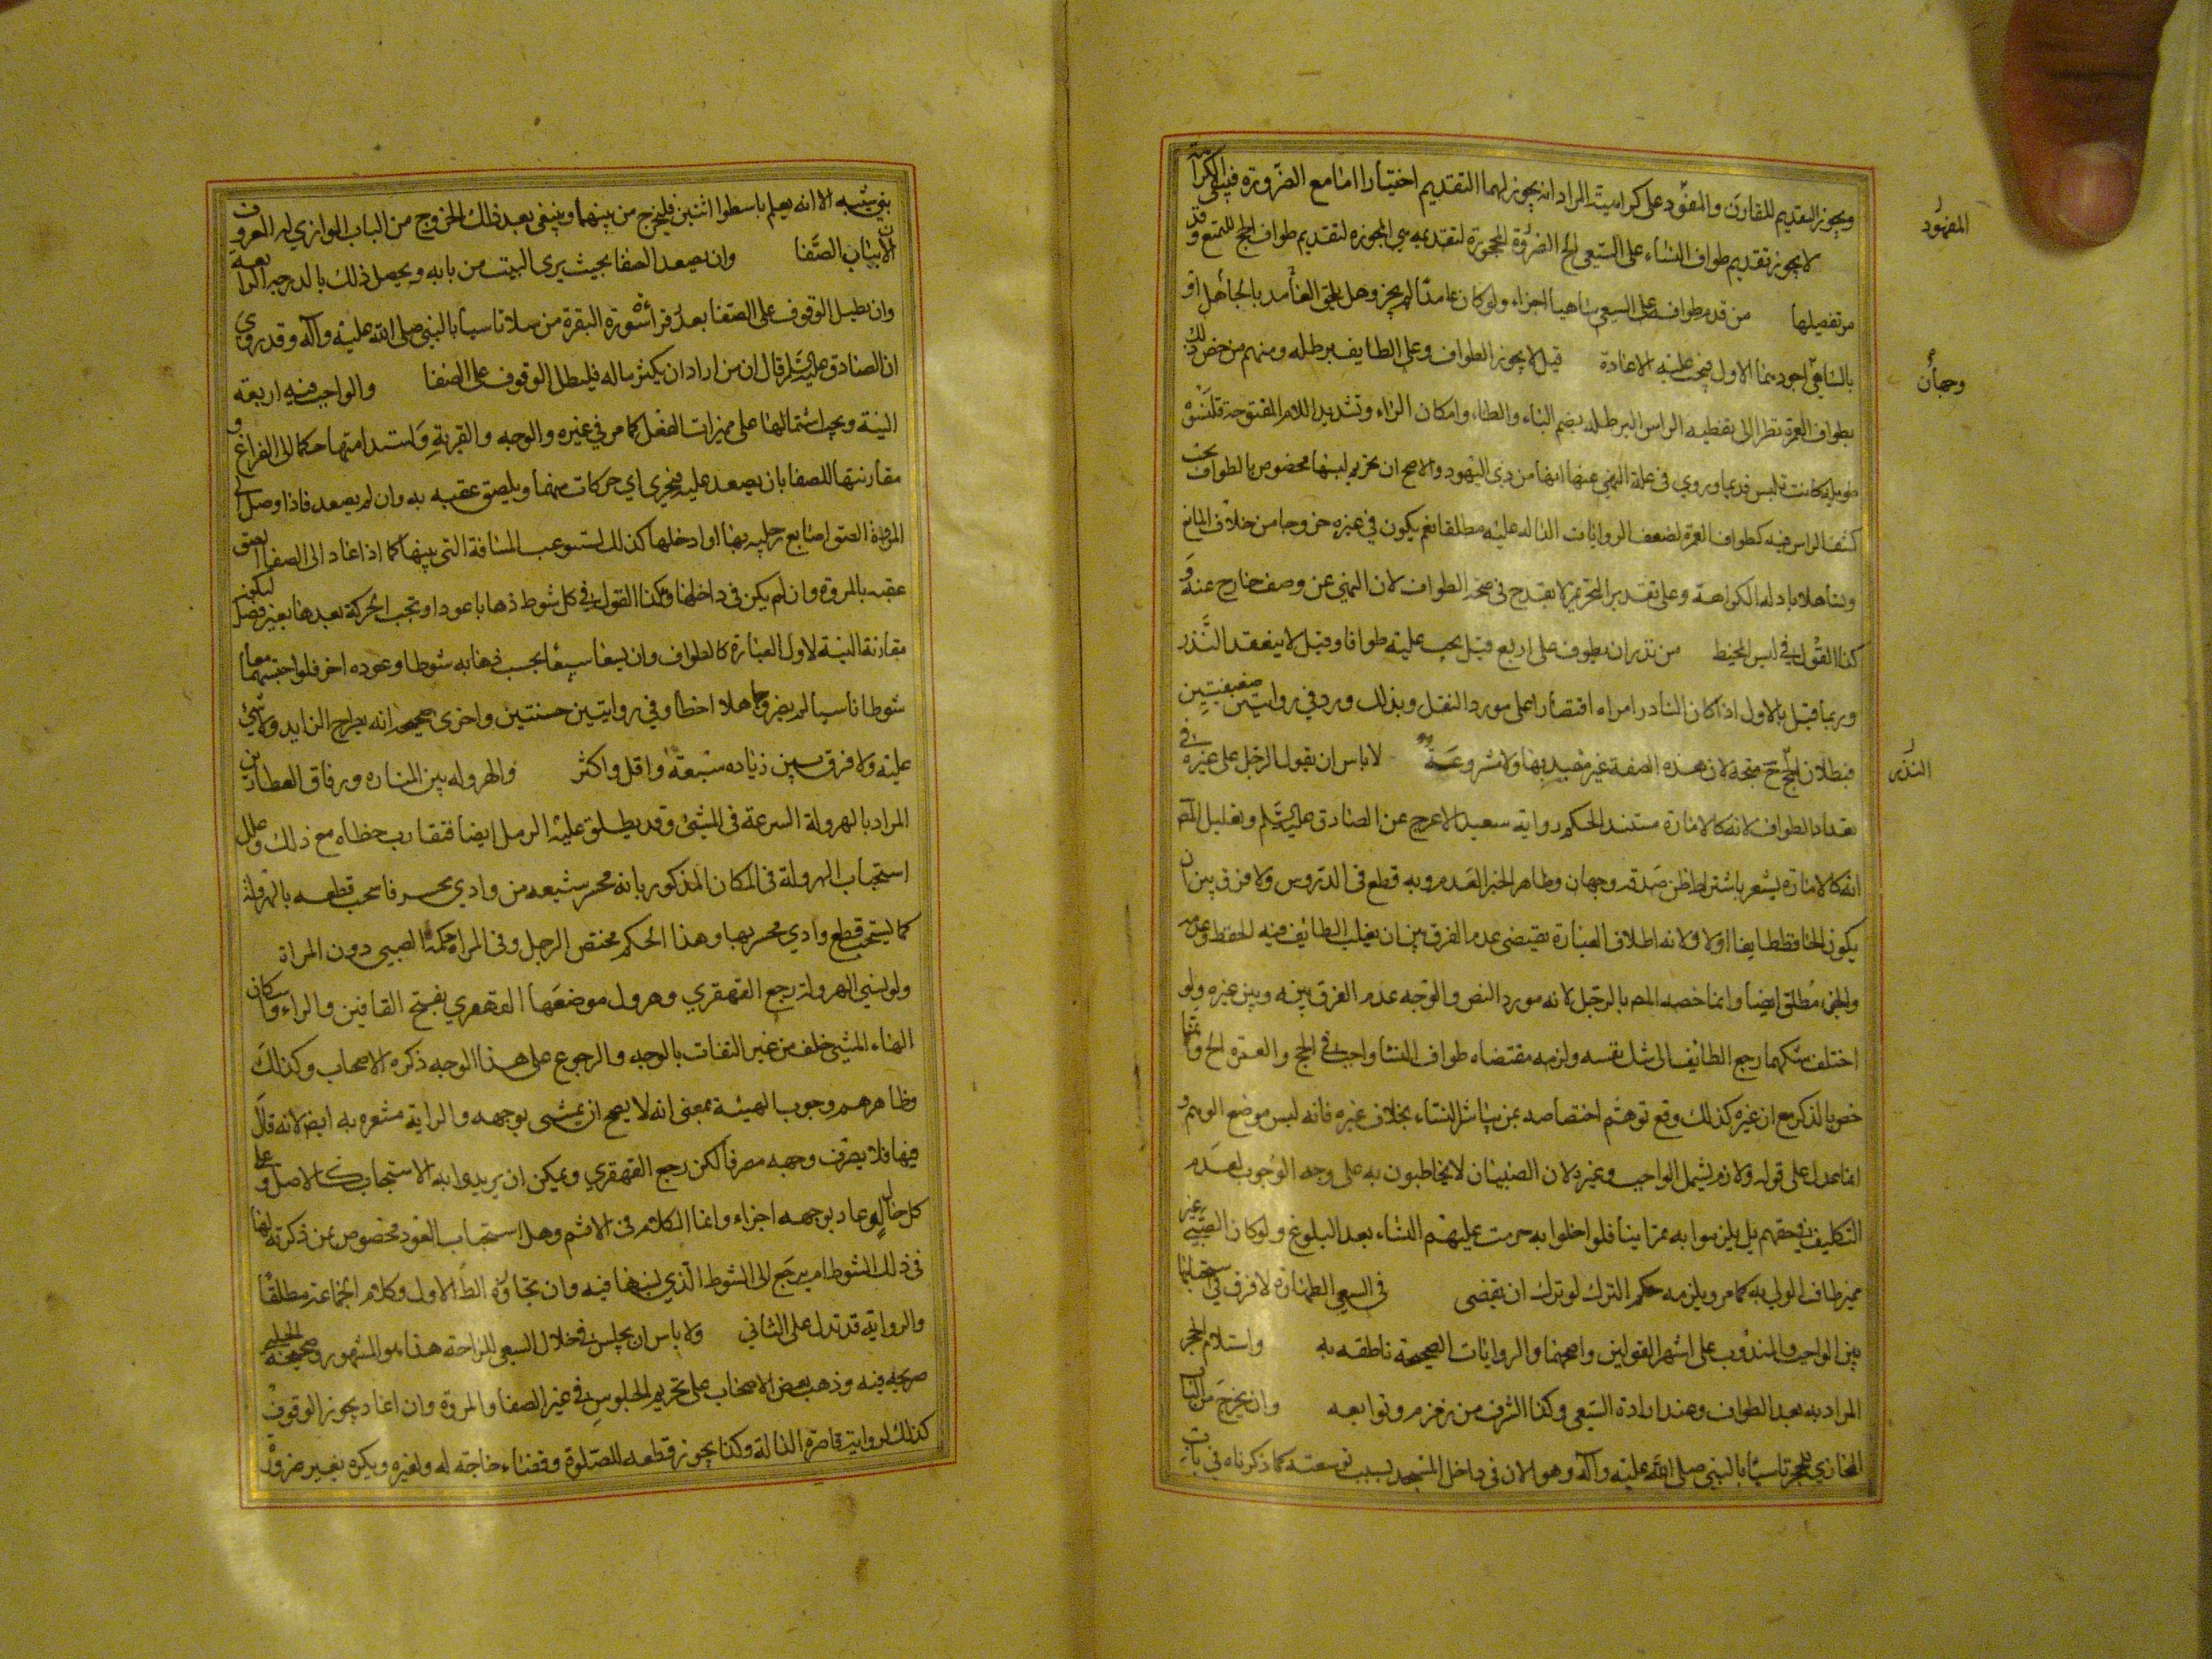 ويجوز التقديم للقارن والمفرد على كراهية المراد انه يجوز لهما التقديم اختيارا اما مع الضرورة فينتفي الكراهة
لا يجوز تقديم طواف النساء على السعي الخ الضرورة المجوزة لتقديمه هي المجوزه لتقديم طواف الحج للمتمتع وقد
مر تفصيلها من قدم طوافه على السعي ساهيا اجزاء ولو كان عامدا لم يجز وهل يلحق العامد بالجاهل او
بالساهي اجودهما الاول فيجب عليه الاعادة قيل لا يجوز الطواف وعلى الطايف برطله ومنهم من خص ذلك
بطواف العمرة نظرا الى تغطيه الراس البرطله بضم الباء والطاء واسكان الراء وتشديد اللام المفتوحة قلنسوه
طويله كانت تلبس قديما وروي في علة النهي عنها انها من زي اليهود والاصح ان تحريم لبسها مخصوص بالطواف يجب
كشف الراس فيه كطواف العمرة لضعف الروايات الداله عليه مطلقا نعم يكون في غيره خروجا من خلاف المانع
وتساهلا بادلة الكراهة وعلى تقدير التحريم لا يقدح في صحة الطواف لان النهي عن وصف خارج عنه و
كذا القول في لبس المخيط من نذر ان يطوف على اربع قيل يجب عليه طوافا وقيل لا ينعقد النذر
وربما قيل بالاول اذا كان الناذر امراه اقتصارا على مورد النقل وبذلك ورد في روايتين ضعيفتين
فبطلان الحج ح متجه لان هذه الصفة غير متعبد بها ولا مشروعة لا باس ان يقول الرجل على غيره في
تعداد الطواف لانه كالامارة مستند الحكم رواية سعيد الاعرج عن الصادق عليه السلم وتعليل المصـ
انه كالامارة يشعر باشتراط ظن صدقه وجهان وظاهر الخبر العدم وبه قطع في الدروس ولا فرق بين ان
يكون الحافظ طايفا او لا ولانه اطلاق العبارة يقتضي عدم الفرق بين ان يغلب الطائف فيه الحفظ وعدمه
والخبر مطلق ايضا وانما خصه المصـ بالرجل لانه مورد النص والوجه عدم الفرق بينه وبين غيره ولو
اختلف شكهما رجع الطائف الى شك نفسه ولزمه مقتضاه طواف النساء واجب في الحج والعمرة الخ وانما
خص بالذكر مع ان غيره كذلك وقع توهم اختصاصه بمن يباشر النساء بخلاف غيره فانه ليس موضع الوهم و
انما عدل على قوله ولازم ليشمل الواجب وغيره لان الصبيان لا يخاطبون به على وجه الوجوب لعدم
التكليف في حقهم بل يلزموا به تمرينا فلو اخلوا به حرمت عليهم النساء بعد البلوغ ولو كان الصبي غير
مميز طاف الولي به كما مر ويلزمه حكم الترك لو ترك ان يقضى في السعي الطهارة لا فرق في استحبابها
بين الواجب والمندوب على اشهر القولين واصحهما والروايات الصحيحة ناطقه به واستلام الحجر
المراد به بعد الطواف وعند ارادة السعي وكذا الشرب من زمزم وتوابعه وان يخرج من الباب
المحاذي للحجر تاسيا بالنبي صلى الله عليه وآله وهو الان في داخل المسجد بسبب توسعته كما ذكرناه في باب
المفرود
وجهان
النذر
بني شيبه الا انه يعلم باسطوانتين فليخرج من بينهما وينبغي بعد ذلك الخروج من الباب الموازي له المعروف
الان بباب الصفا وان يصعد الصفا بحيث يرى البيت من بابه ويحصل ذلك بالدرجه الرابعه
وان يطيل الوقوف على الصفا بعد قرائة سورة البقرة مترسلا تاسيا بالنبي صلى الله عليه وآله وقد روي
ان الصادق عليه السلم قال ان من اراد ان يكثر ماله فليطل الوقوف على الصفا والواجب فيه اربعة
النية ويجب اشتمالها على مميزات الفعل كما مر في غيره والوجه والقربة واستدامتها حكما الى الفراغ و
مقارنتها للصفا بان يصعد عليه فيجزي اي حركات منهما ويلصق عقبه به وان لم يصعد فاذا وصل الى
المروة الصق اصابع رجليه بها او ادخلها كذلك ليستوعب المسافة التي بينهما كما اذا عاد الى الصفا الصق
عقبه بالمروة وان لم يكن في داخلها وكذا القول في كل شوط ذهابا عودا وتجب الحركة بعدها بغير فصل لتكون
مقارنة النية لاول العبارة كالطواف وان يسعى سبعا يحسب ذهابه شوطا وعوده اخر فلو احتسبهما معا
شوطا ناسيا لم يضر وجاهلا اخطا وفي روايتين حسنتين واخرى صحيحه انه يطرح الزايد ولا شئ
عليه ولا فرق بين زياده سبعة واقل واكثر والهروله بين المناره وزقاق العطارين
المراد بالهرولة السرعة في المشي وقد يطلق عليه الرمل ايضا فتقارب خطاه مع ذلك وعلل
استحباب الهرولة في المكان المذكور بانه محسر شبعه من وادي محسر فاستحب قطعه بالهرولة
كما يستحب قطع وادي محسر بها وهذا الحكم مختص الرجل وفي المراة حكمه الصبي دون المراة
ولو نسي الهرولة رجع القهقري وهرول موضعها القهقري بفتح القافين والراء واسكان
الهاء المشي خلف من غير التفات بالوجه والرجوع على هذا الوجه ذكره الاصحاب وكذلك
وظاهرهم وجوب الهيئة بمعنى انه لا يصح ان يمشى بوجهه والراية مشعره به ايضا لانه قال
فيها فلا يصرف وجهه مصرفا لكن رجع القهقري ويمكن ان يريدوا به الاستحباب كالاصل وعلى
كل حال لو عاد بوجهه اجزاء وانما الكلام في الاثم وهل استحباب العود مخصوص بمن ذكرته لها
في ذلك الشوط ام يرجع الى الشوط الذي نسيها فيه وان تجاوزه الظ الاول وكلام الجماعة مطلقا
والرواية قد تدل على الثاني ولا باس ان يجلس في خلال السعي للراحة هذا هو المشهور وصحيحة الحلبي
صريحه فيه وذهب بعض الاصحاب على تحريم الجلوس في غير الصفا والمروة وان اعاد يجوز الوقوف
كذلك لرواية قاصرة الدالة وكذا يجوز قطعه للصلوة وقضاء حاجته له ولغيره ويكره بغير ضرورة